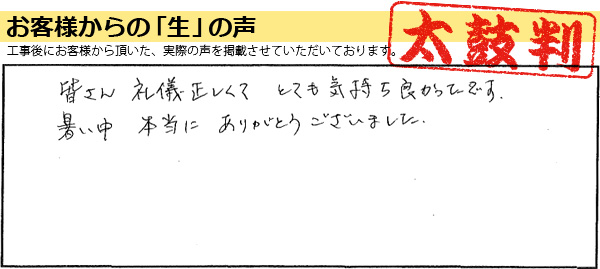 お客様からの「生」の声
太鼓判
工事後にお客様から頂いた、実際の声を掲載させていただいております。
皆さん 礼儀正しくて とても気持ち良かったです.
暑い中 本当に ありがとうございました.